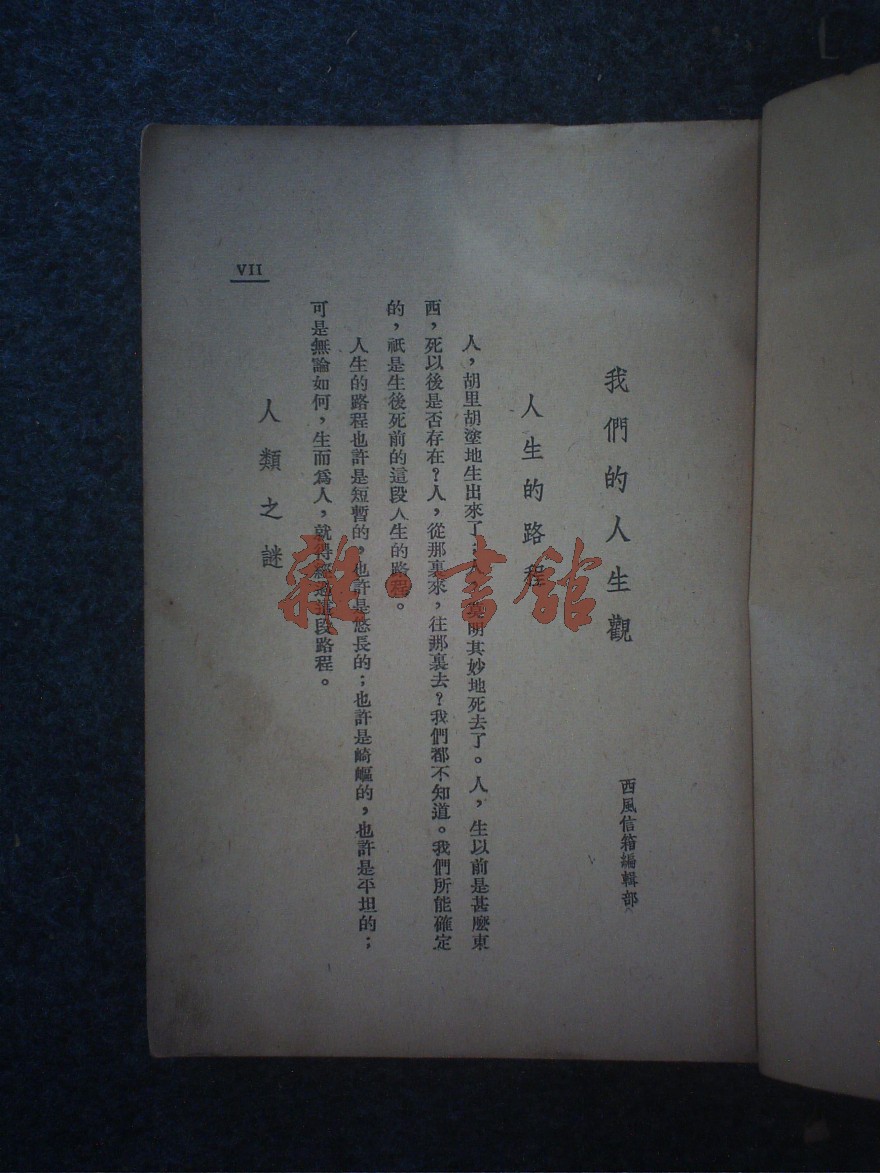 我們的人生觀
西風信箱編輯部
人生的路程
人，胡里胡塗地生出來了；人，莫明其妙地死去了。人，生以前是甚麼東
西，死以後是否存在？人，從那裏來，往那裏去？我們都不知道。我們所能確定
的，祇是生後死前的這段人生的路程。
人生的路程也許是短暫的，也許是悠長的；也許是崎嶇的，也許是平坦的；
可是無論如何，生而爲人，就得經過這段路程。
人類之謎
VII
雜·書舘